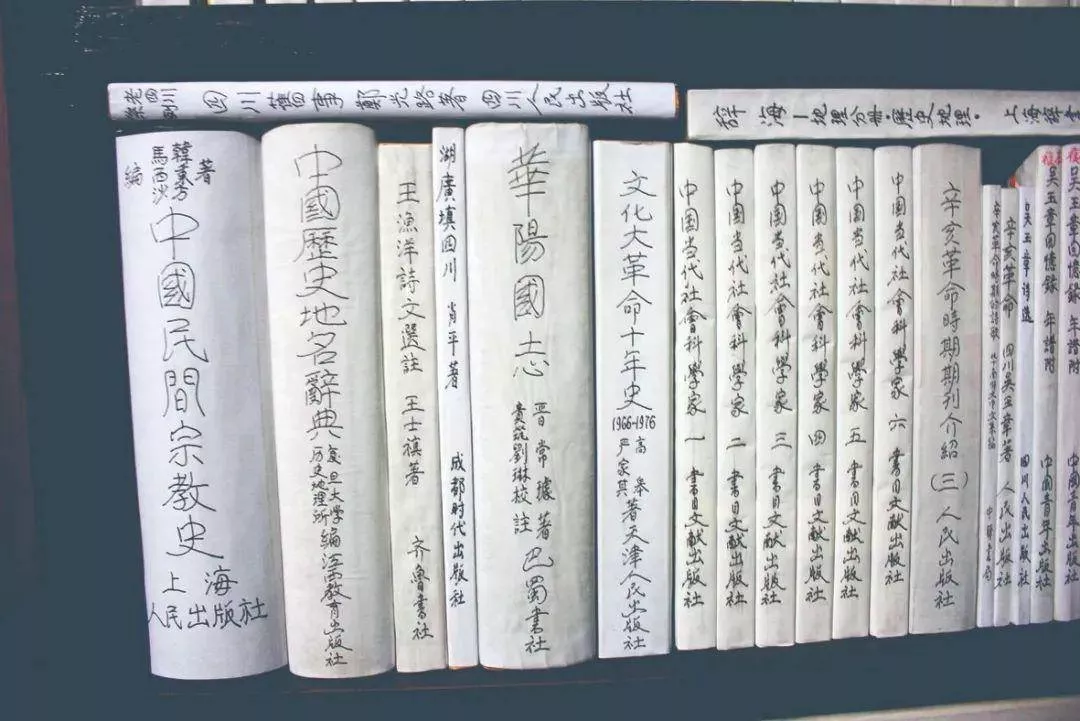 老四川
四川舊事 鄭光路著 四川人民出版社
辭海—地理分册·歷史地理·上海辭書
馬西沙
韓秉芳
編著
中國民間宗教史
上海
人民出版社
中國歷史地名辭典
復旦大學
历史地理所
編
江西教育出版社
王漁洋詩文選註 王士禛著 齐魯書社
湖廣填四川 肖平著 成都时代出版社
華陽國志
晋常璩著
貴筑劉琳校註
巴蜀書社
文化大革命十年史
1966-1976
高皋
严家其
著
天津人民出版社
中国当代社會科學家 一 書目文献出版社
中国当代社會科學家 二 書目文献出版社
中国当代社會科學家 三 書目文献出版社
中国当代社會科學家 四 書目文献出版社
中国当代社會科學家 五 書目文献出版社
中国当代社會科學家 六 書目文献出版社
辛亥革命時期期刊介紹(三)人民出版社
辛亥革命時期的詩歌
中華書局
辛亥革命 四川吴玉章著 人民出版社
吴玉章诗选 四川人民出版社
吴玉章回憶録 年譜附 中國青年出版社
吴玉章回憶録 年譜附 中國青年出版社